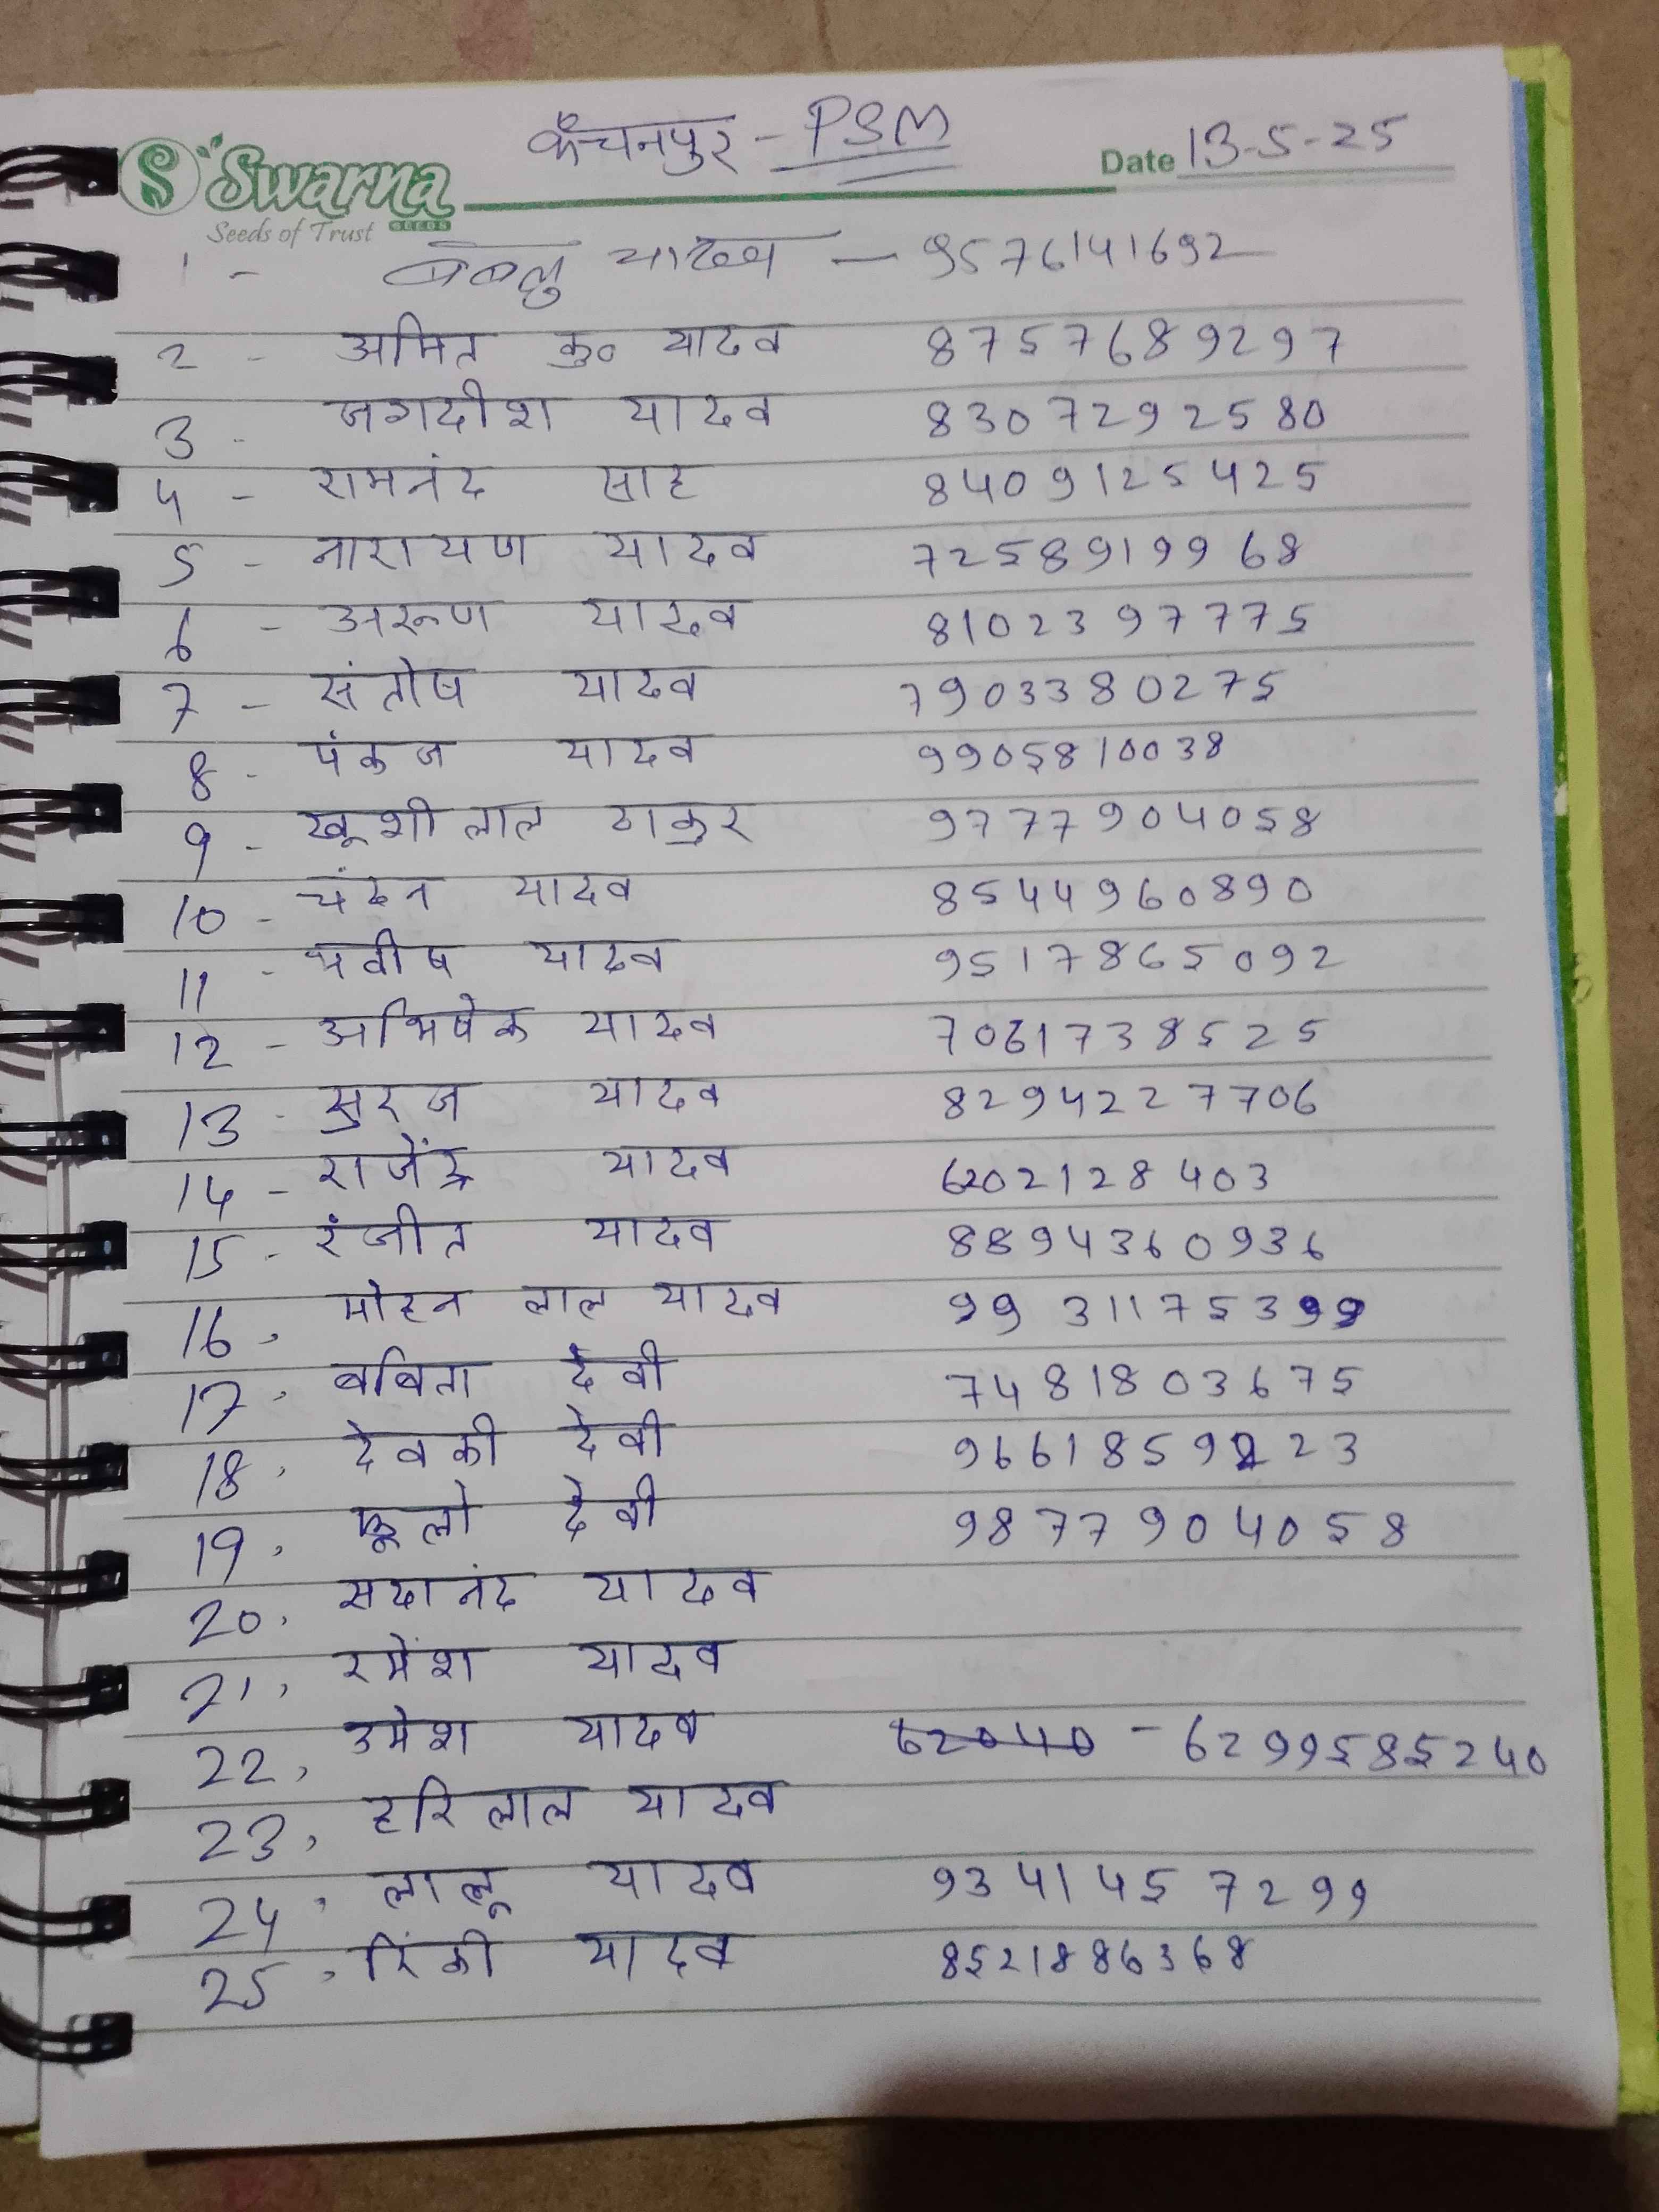 कंचनपुर - PSM
Swarna
SEEDS
Seeds of Trust
Date 13-5-25
1 - बबलु यादव - 9576141692
2 - अमित कु० यादव 8757689297
3 - जगदीश यादव 8307292580
4 - रामनंद साह 8409125425
5 - नारायण यादव 7258919968
6 - अरूण यादव 8102397775
7 - संतोष यादव 7903380275
8 - पंकज यादव 9905810038
9 - खूशीलाल ठाकुर 9777904058
10 - चंदन यादव 8544960890
11 - यादव 9517865092
12 - अभिषेक यादव 7061738525
13 - सुरज यादव 8294227706
14 - राजेंद्र यादव 6202128403
15 - रंजीत यादव 8894360936
16, मोहन लाल यादव 9931175399
17, बबिता देवी 7481803675
18, देवकी देवी 9661859223
19, फूलो देवी 9877904058
20, सदानंद यादव
21, रमेंश यादव
22, उमेश यादव 62040 - 6299585240
23, हरिलाल यादव
24, लालू यादव 9341457299
25, रिंकी यादव 8521886368